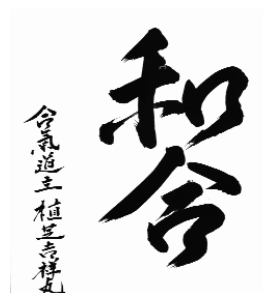 和合
合氣道主 植芝吉祥丸